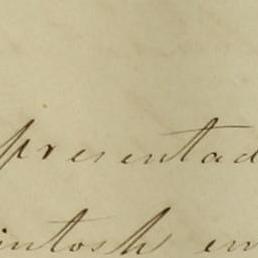 presentad
intosh em